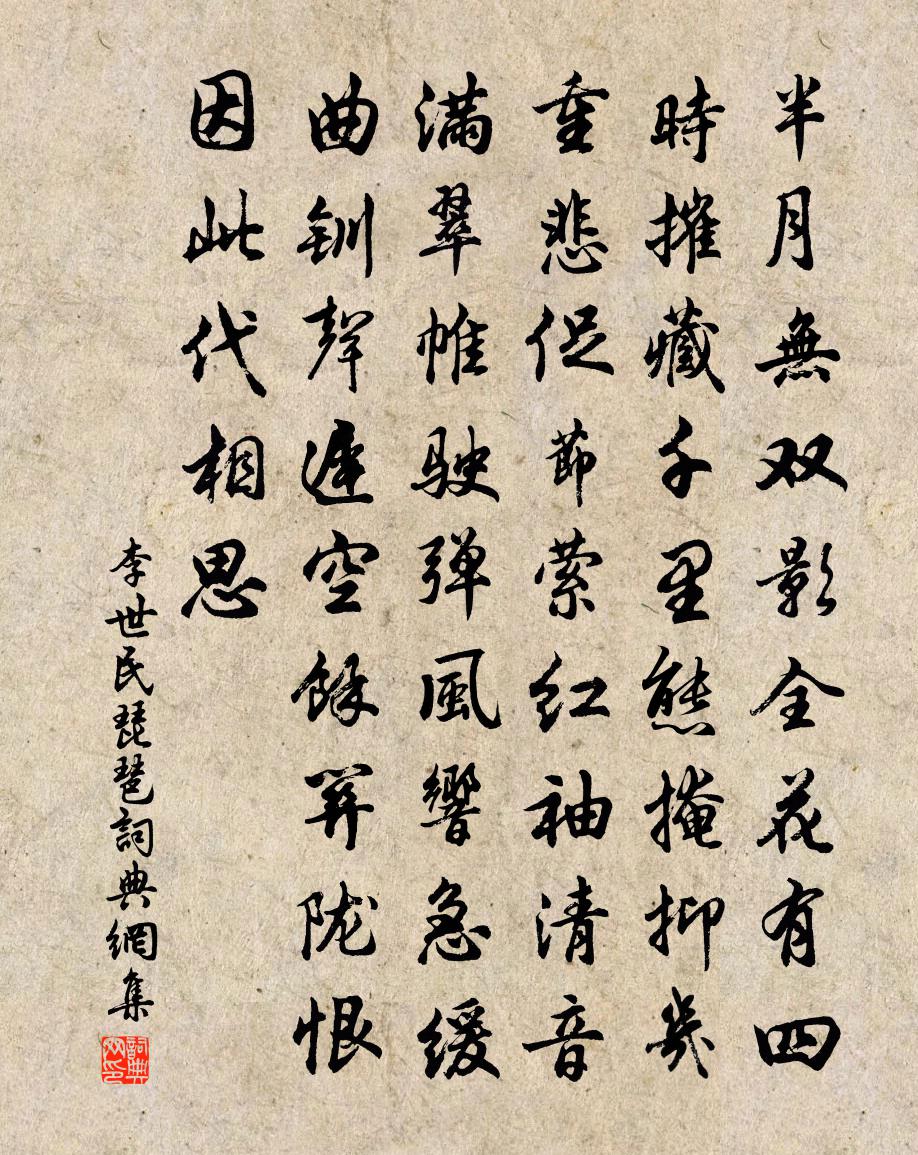 半月無双影全花有四
時摧藏千里態掩抑幾
重悲促節縈红袖清音
满翠帷駛弹風響急缓
曲釧聲遲空餘關陇恨
因此代相思
李世民琵琶詞典網集
詞典网印